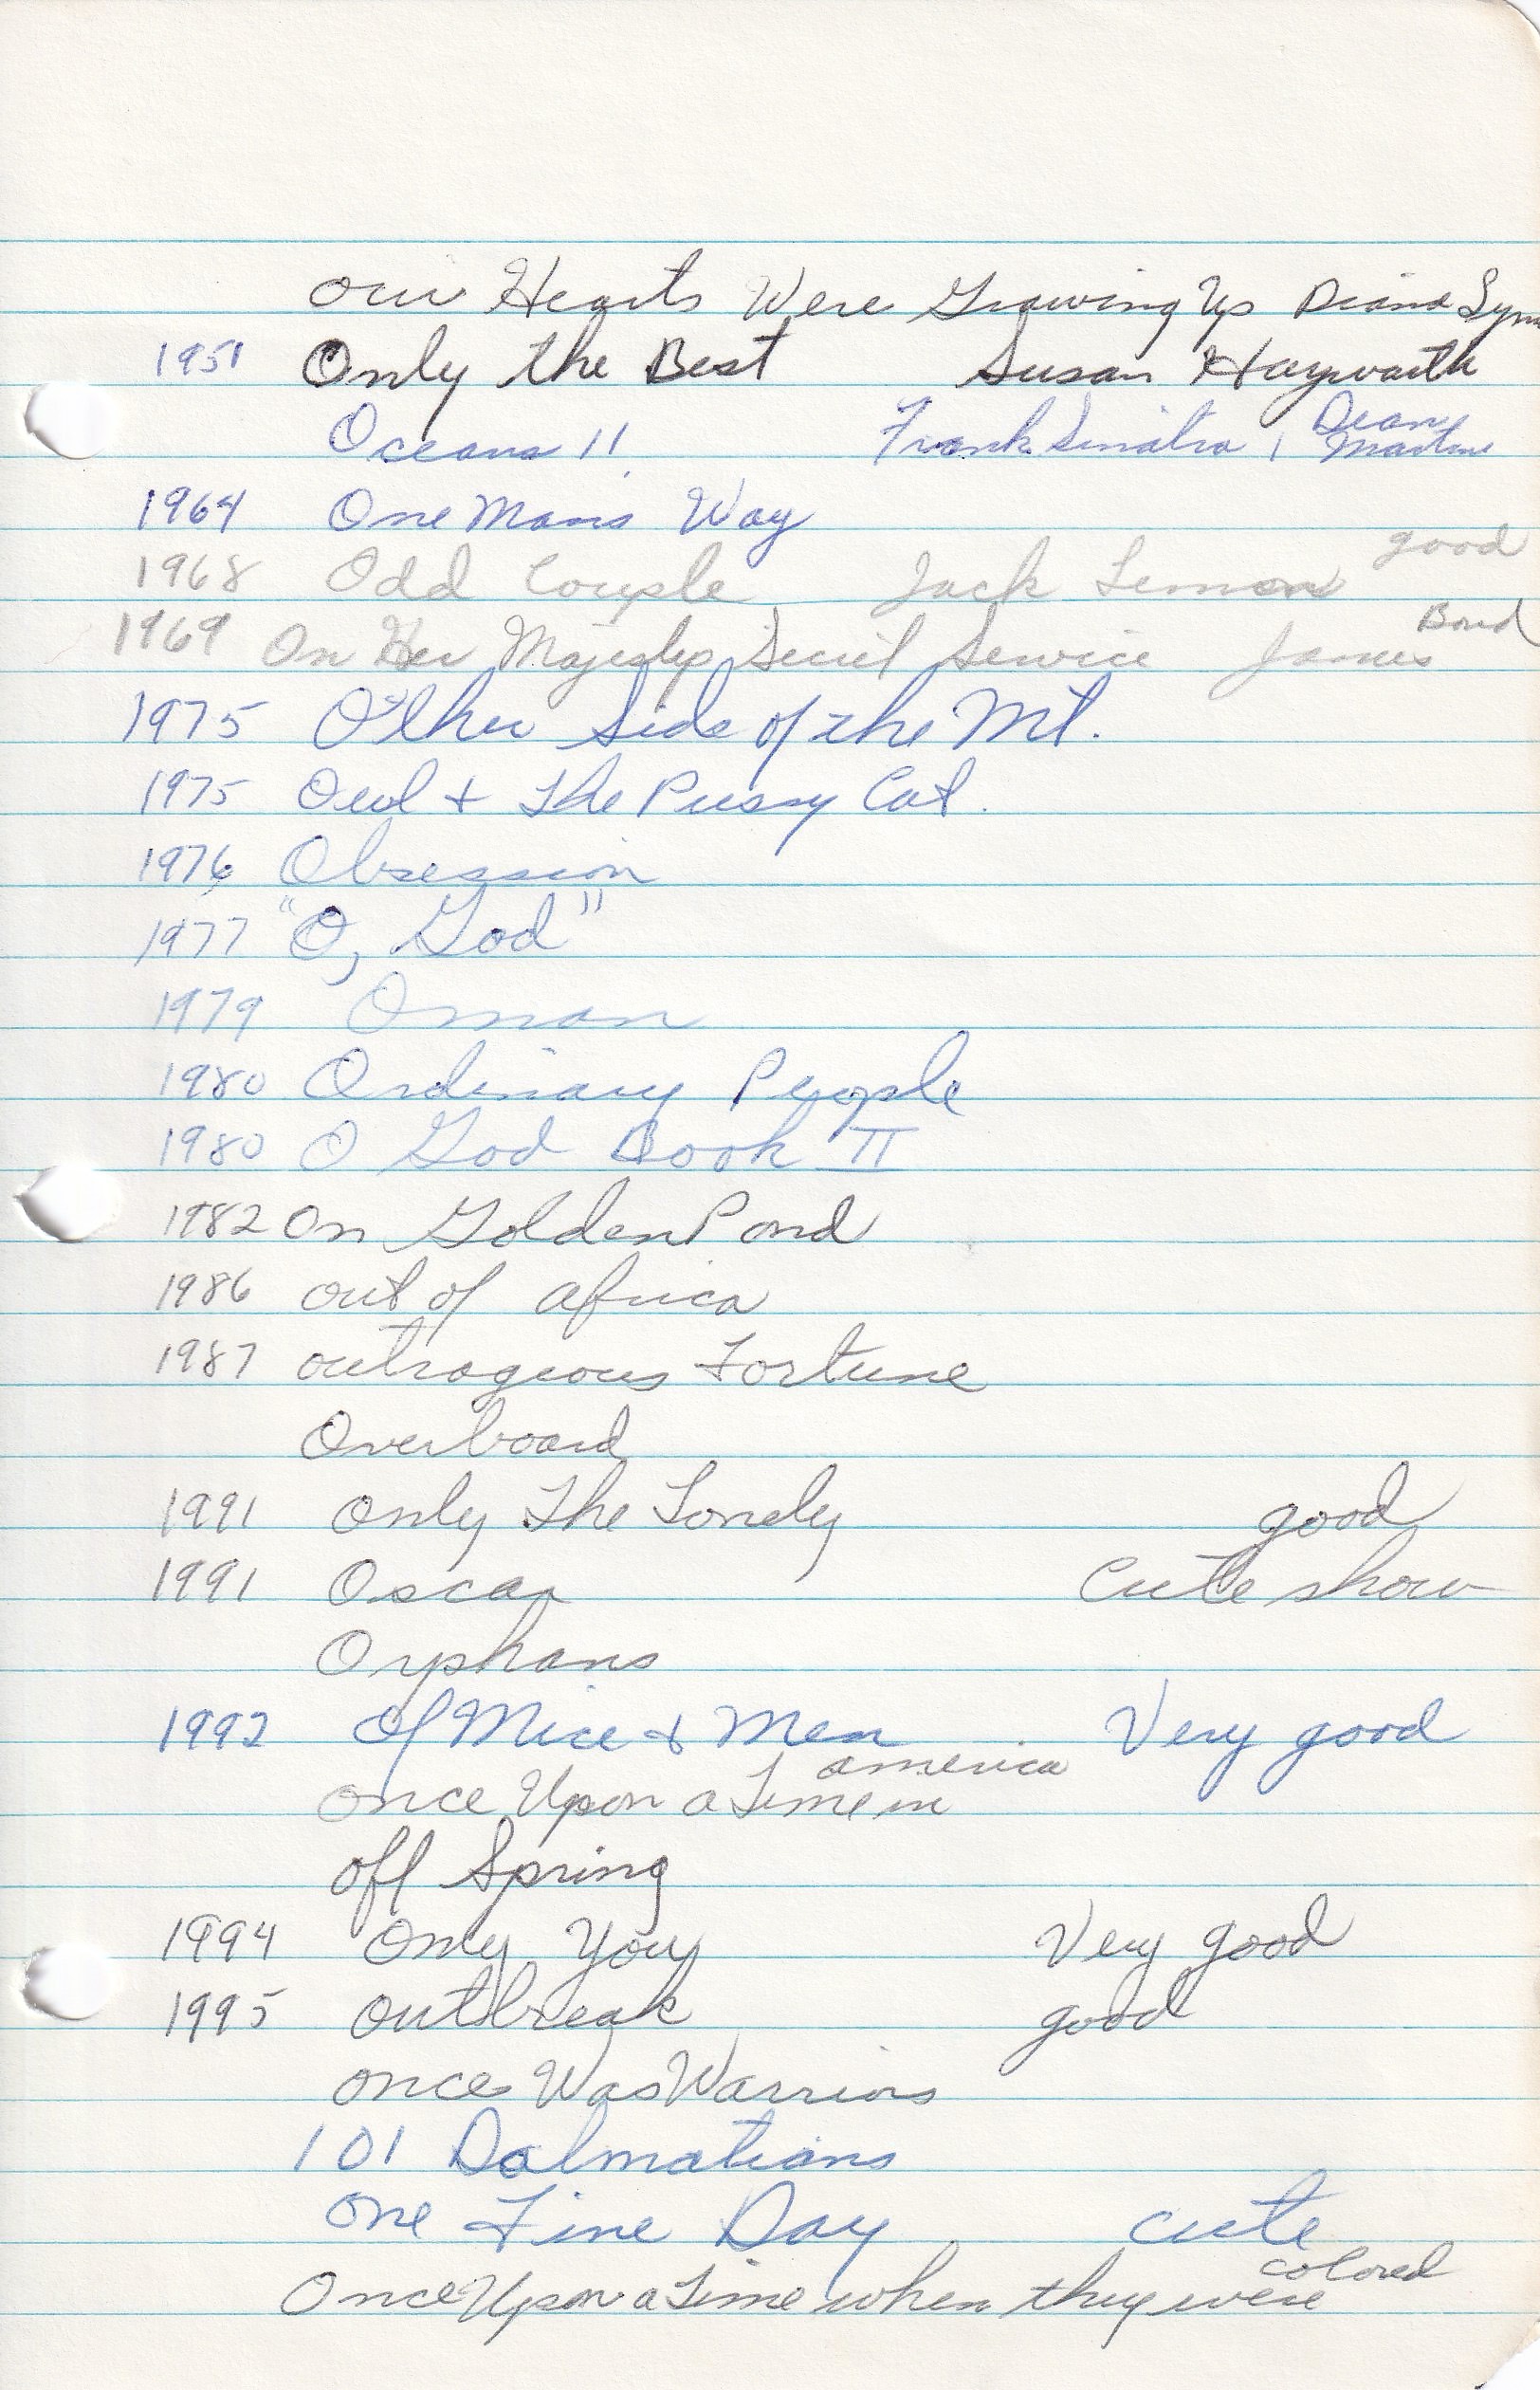 our Hearts Were Growing Up Diana Lynn
1951 Only the Best Susan Haywarth
Oceans 11 Frank Sinatra, Dean Martin
1964 One Mans Way
1968 Odd Couple Jack Lemon good
1969 On Her Majestys Secret Service James Bond
1975 Other Side of the Mt.
1975 Owl + The Pussy Cat.
1976 Obsession
1977 "O, God"
1979 Oman
1980 Ordinary People
1980 O God Book II
1982 On Golden Pond
1986 out of africa
1987 outrageous Fortune
Overboard
1991 Only The Lonely good
1991 Oscar Cute show
Orphans
1992 Of Mice + Men Very good
once Upon a Time in america
off Spring
1994 Only You Very good
1995 outbreak good
once Was Warriors
101 Dalmatians
one Fine Day cute
Once Upon a Time when they were colored